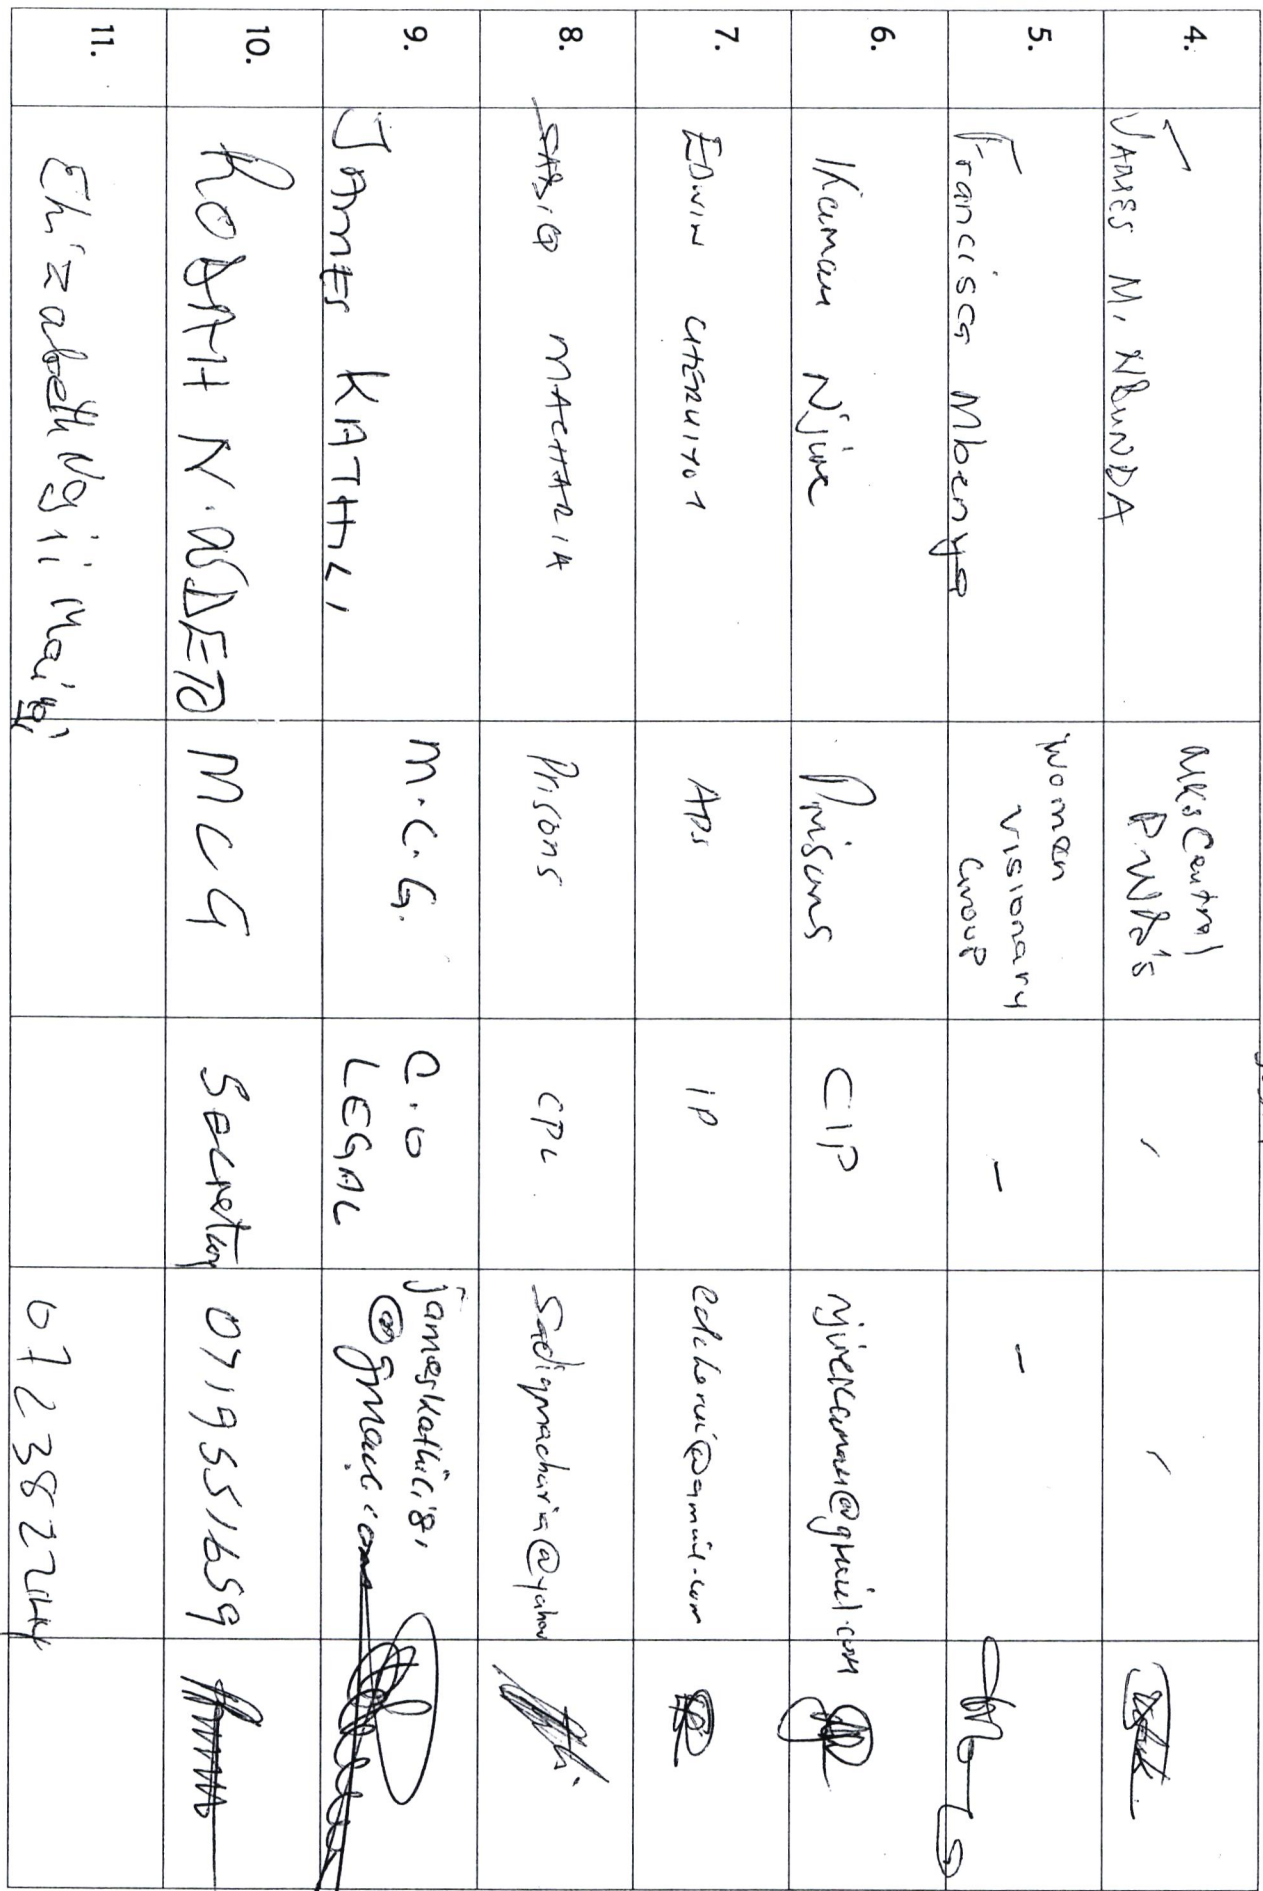 4. JAMES M. NBUNDA MKs Central P.WD's - -
5. Francisca Mbenya Women Visionary Group - -
6. Kamau Njine Prisons CIP njinekamau@gmail.com
7. EDWIN CHERUIYOT APs IP edcherui@gmail.com
8. SADIQ MACHARIA Prisons CPL Sadiqmacharia@yahoo
9. JAMES KATHILI M.C.G. C.O LEGAL jameskathili81 @gmail.com
10. RODAH N. NDETO MCG Secretary 0719551659
11. Elizabeth Ngii 0723822144